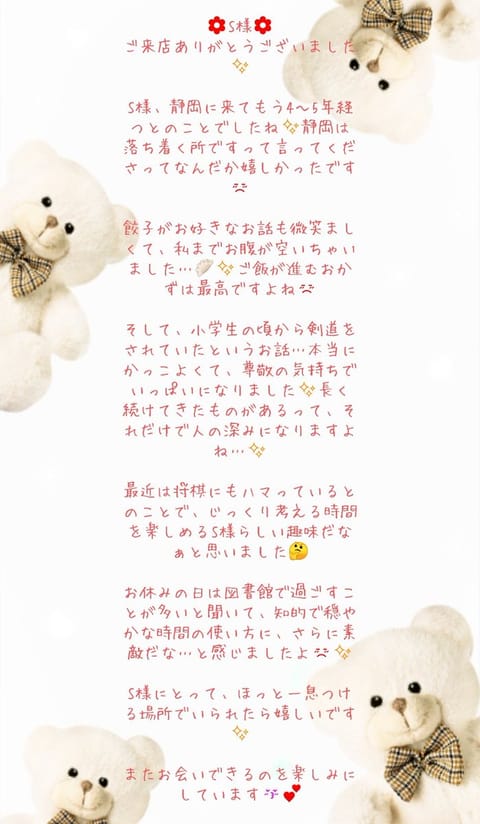 S様
ご来店ありがとうございました
✨
S様、静岡に来てもう4〜5年経
つとのことでしたね✨静岡は
落ち着く所ですって言ってくだ
さってなんだか嬉しかったです
餃子がお好きなお話も微笑まし
くて、私までお腹が空いちゃい
ました…🥟✨ご飯が進むおか
ずは最高ですよね
そして、小学生の頃から剣道を
されていたというお話…本当に
かっこよくて、尊敬の気持ちで
いっぱいになりました✨長く
続けてきたものがあるって、そ
れだけで人の深みになりますよ
ね…✨
最近は将棋にもハマっていると
のことで、じっくり考える時間
を楽しめるS様らしい趣味だな
ぁと思いました🤔
お休みの日は図書館で過ごすこ
とが多いと聞いて、知的で穏や
かな時間の使い方に、さらに素
敵だな…と感じましたよ✨
S様にとって、ほっと一息つけ
る場所でいられたら嬉しいです
✨
またお会いできるのを楽しみに
しています💕